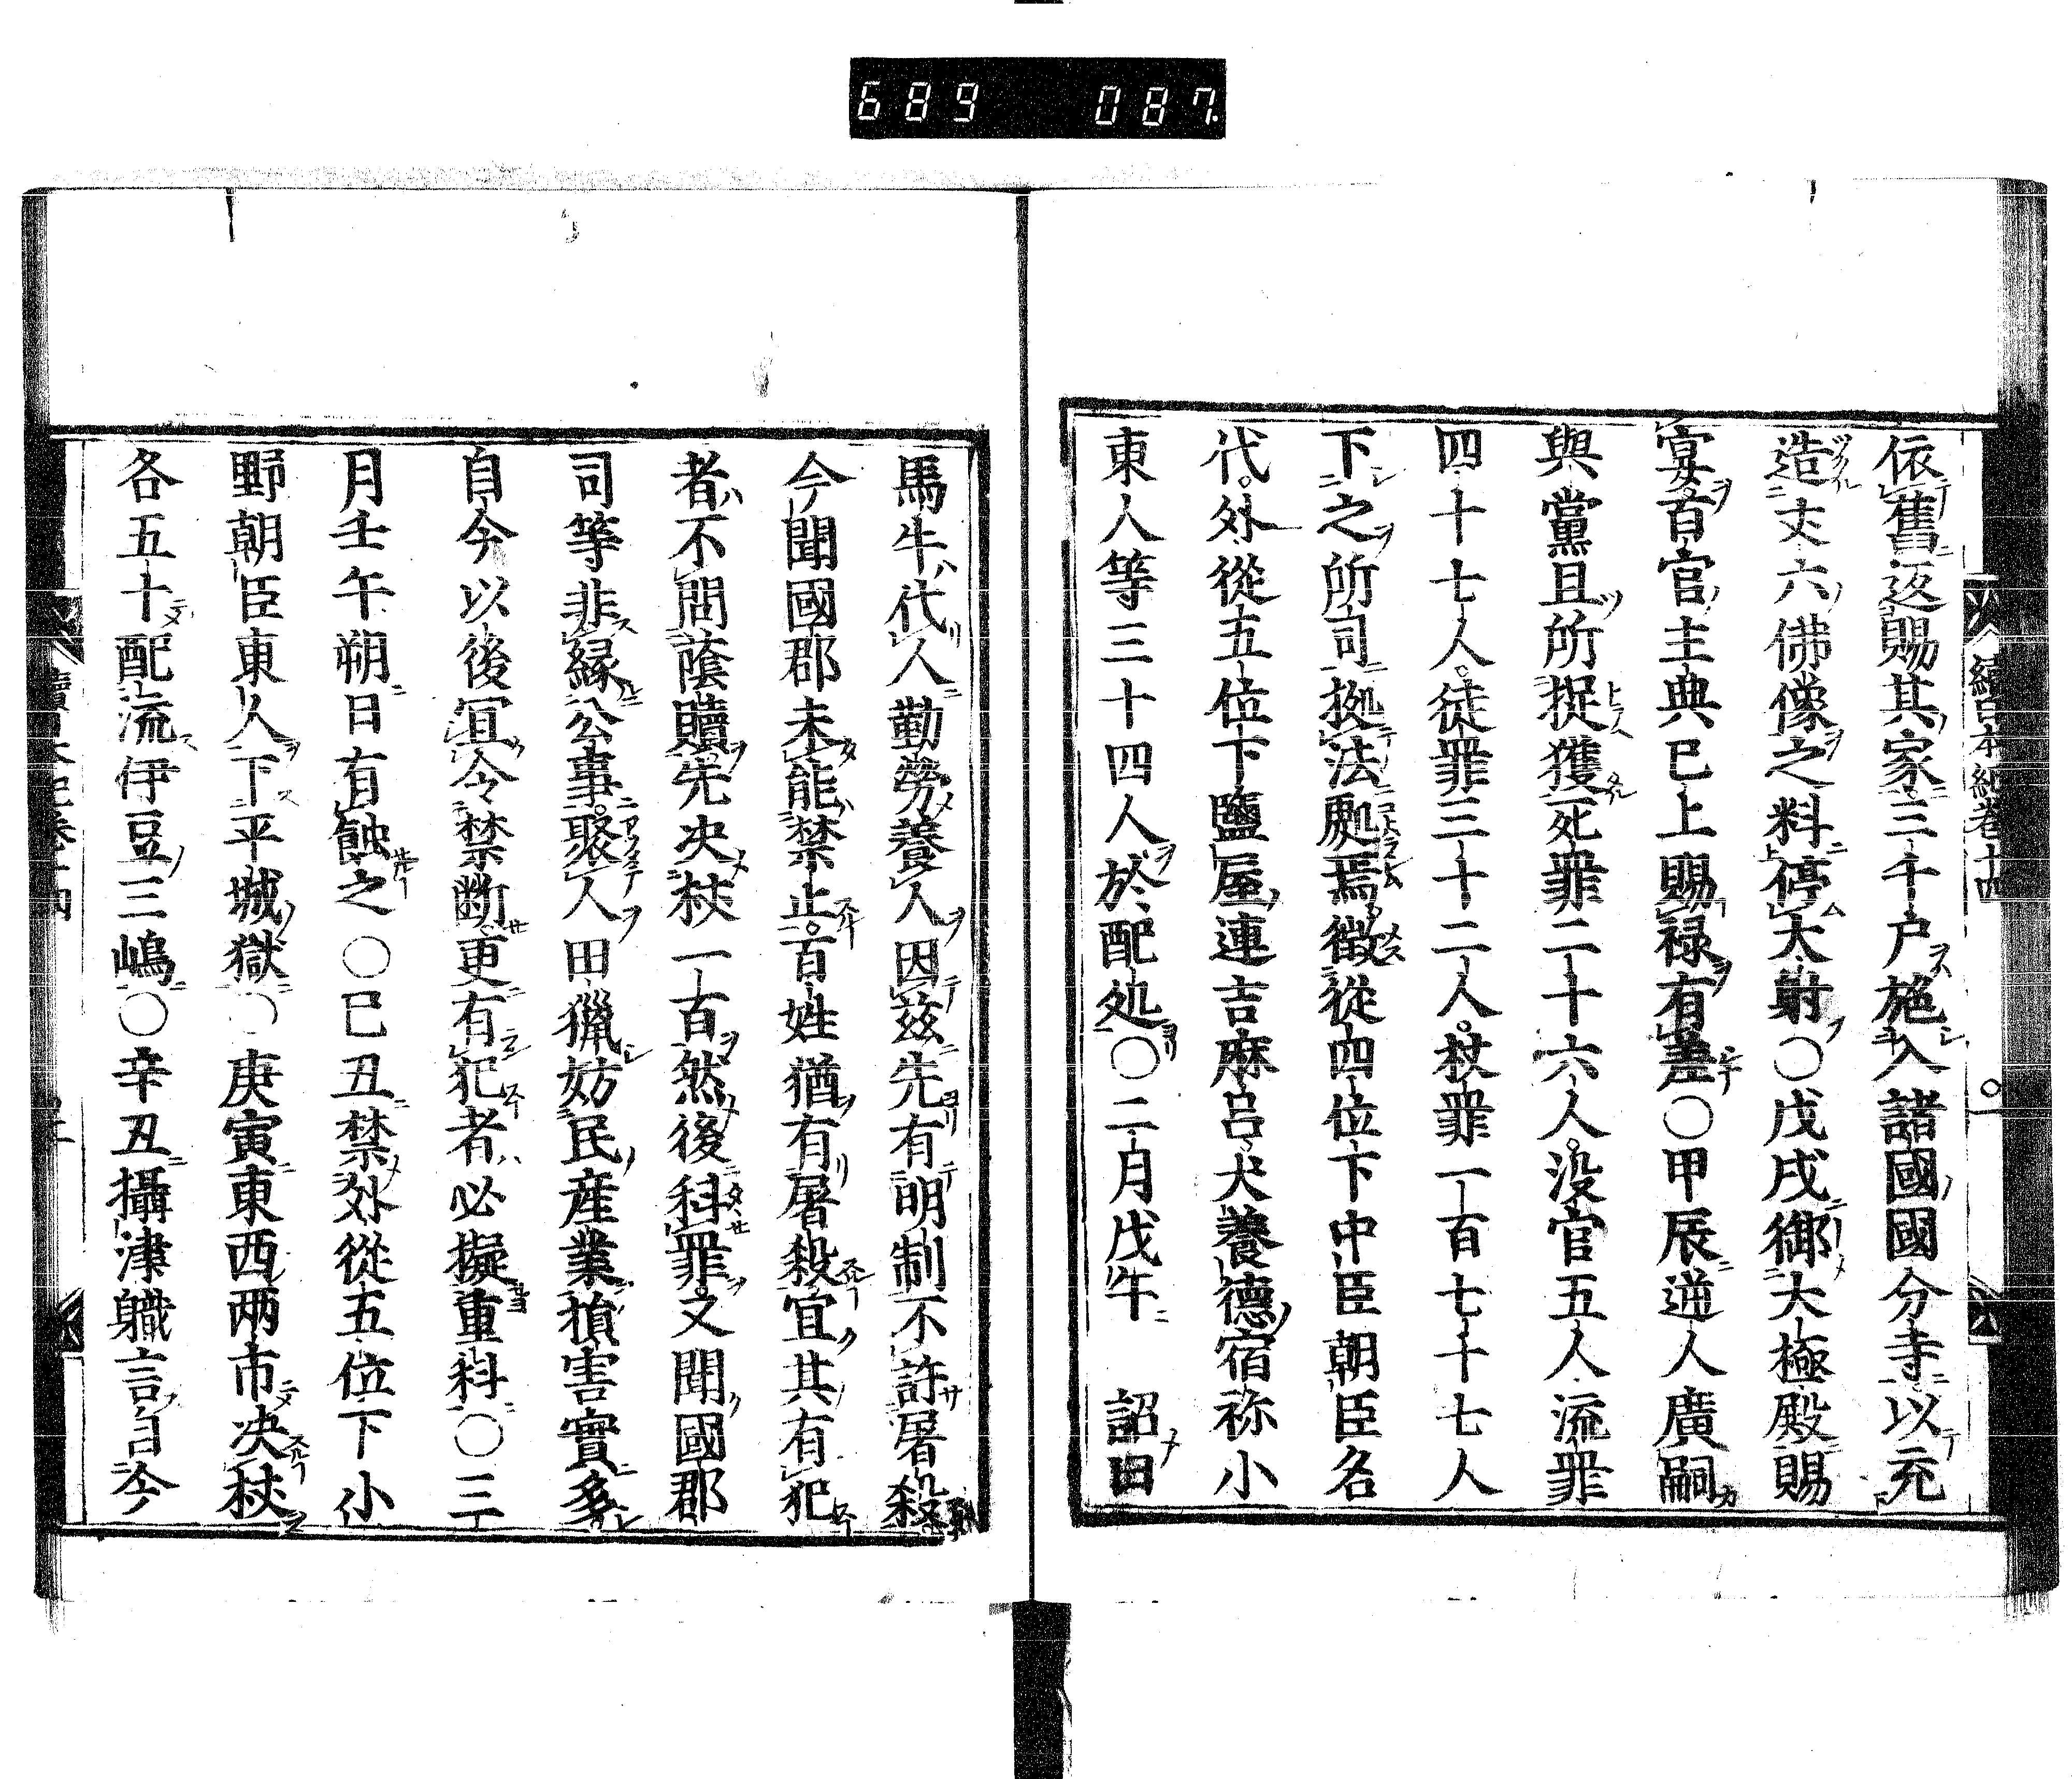 689 087
續日本紀卷十四
依舊返賜其家三千戸施入諸國國分寺以充
造丈六佛像之料停大射〇戊戌御大極殿賜
宴百官主典已上賜禄有差〇甲辰逆人廣嗣
與黨且所捉獲死罪二十六人没官五人流罪
四十七人徒罪三十二人杖罪一百七十七人
下之所司拠法処焉徴從四位下中臣朝臣名
代外從五位下鹽屋連吉麻呂大養德宿祢小
東人等三十四人於配処〇二月戊午 詔曰
馬牛代人勤勞養人因茲先有明制不許屠殺
今聞國郡未能禁止百姓猶有屠殺宜其有犯
者不問蔭贖先决杖一百然後科罪又聞國郡
司等非緣公事聚人田獵妨民産業損害實多
自今以後宜令禁斷更有犯者必擬重科〇三
月壬午朔日有蝕之〇己丑禁外從五位下小
野朝臣東人下平城獄〇庚寅東西两市决杖
各五十配流伊豆三嶋〇辛丑攝津職言自今